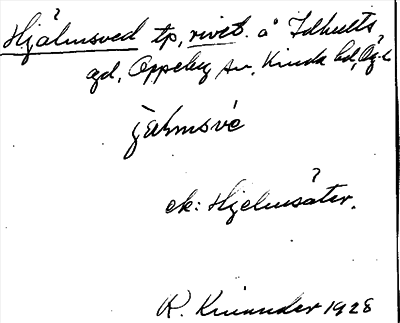 ?
Hjälmsved tp, rivet. å Idhults
gd, Oppeby sn, Kinda hd, Ög. l.
jälmsvé
?
ek: Hjelmsäter.
R. Kinander 1928